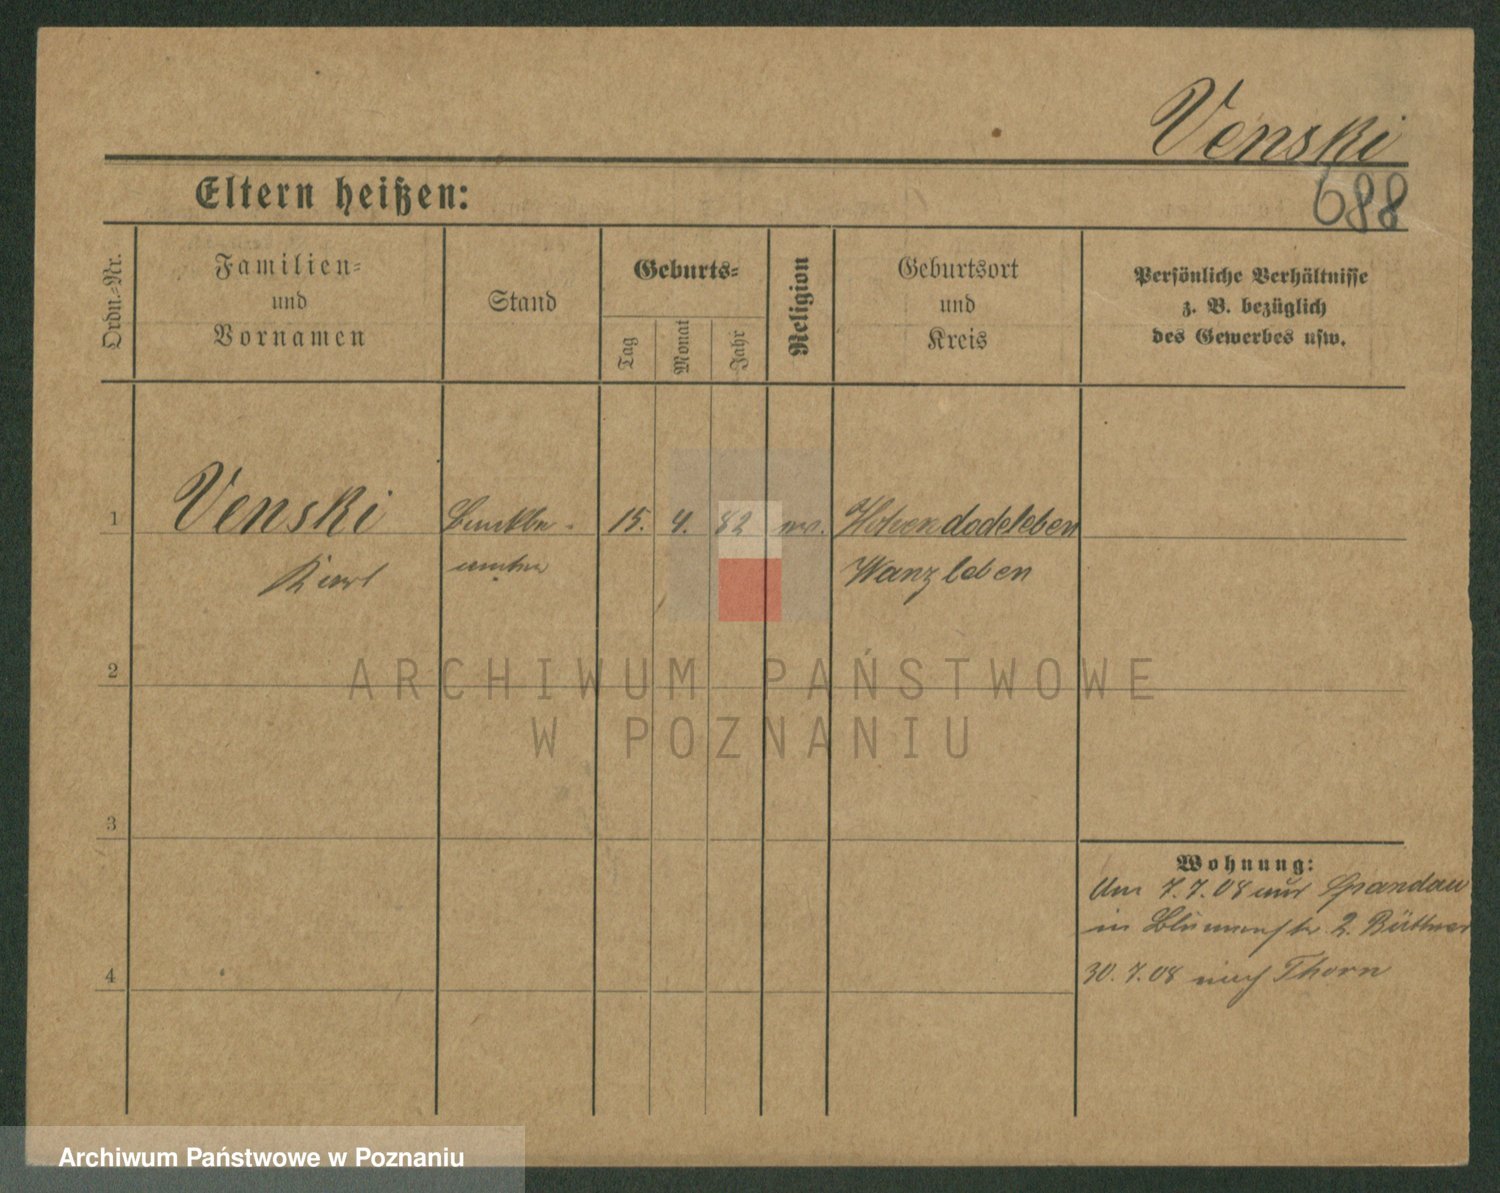 Venski
688
Eltern heißen:
Ordn.-Nr.
Familien-
und
Vornamen
Stand
Geburts-
Tag
Monat
Jahr
Religion
Geburtsort
und
Kreis
Persönliche Verhältnisse
z. B. bezüglich
des Gewerbes usw.
1
Venski
Bankbe-
15.
4.
82
ev.
Hohendodeleben
Karl
amter
Wanzleben
ARCHIWUM PAŃSTWOWE
W POZNANIU
2
3
4
Wohnung:
Am 7.7.08 aus Spandau
in Blumenstr 2. Büttner
30.7.08 nach Thorn
Archiwum Państwowe w Poznaniu